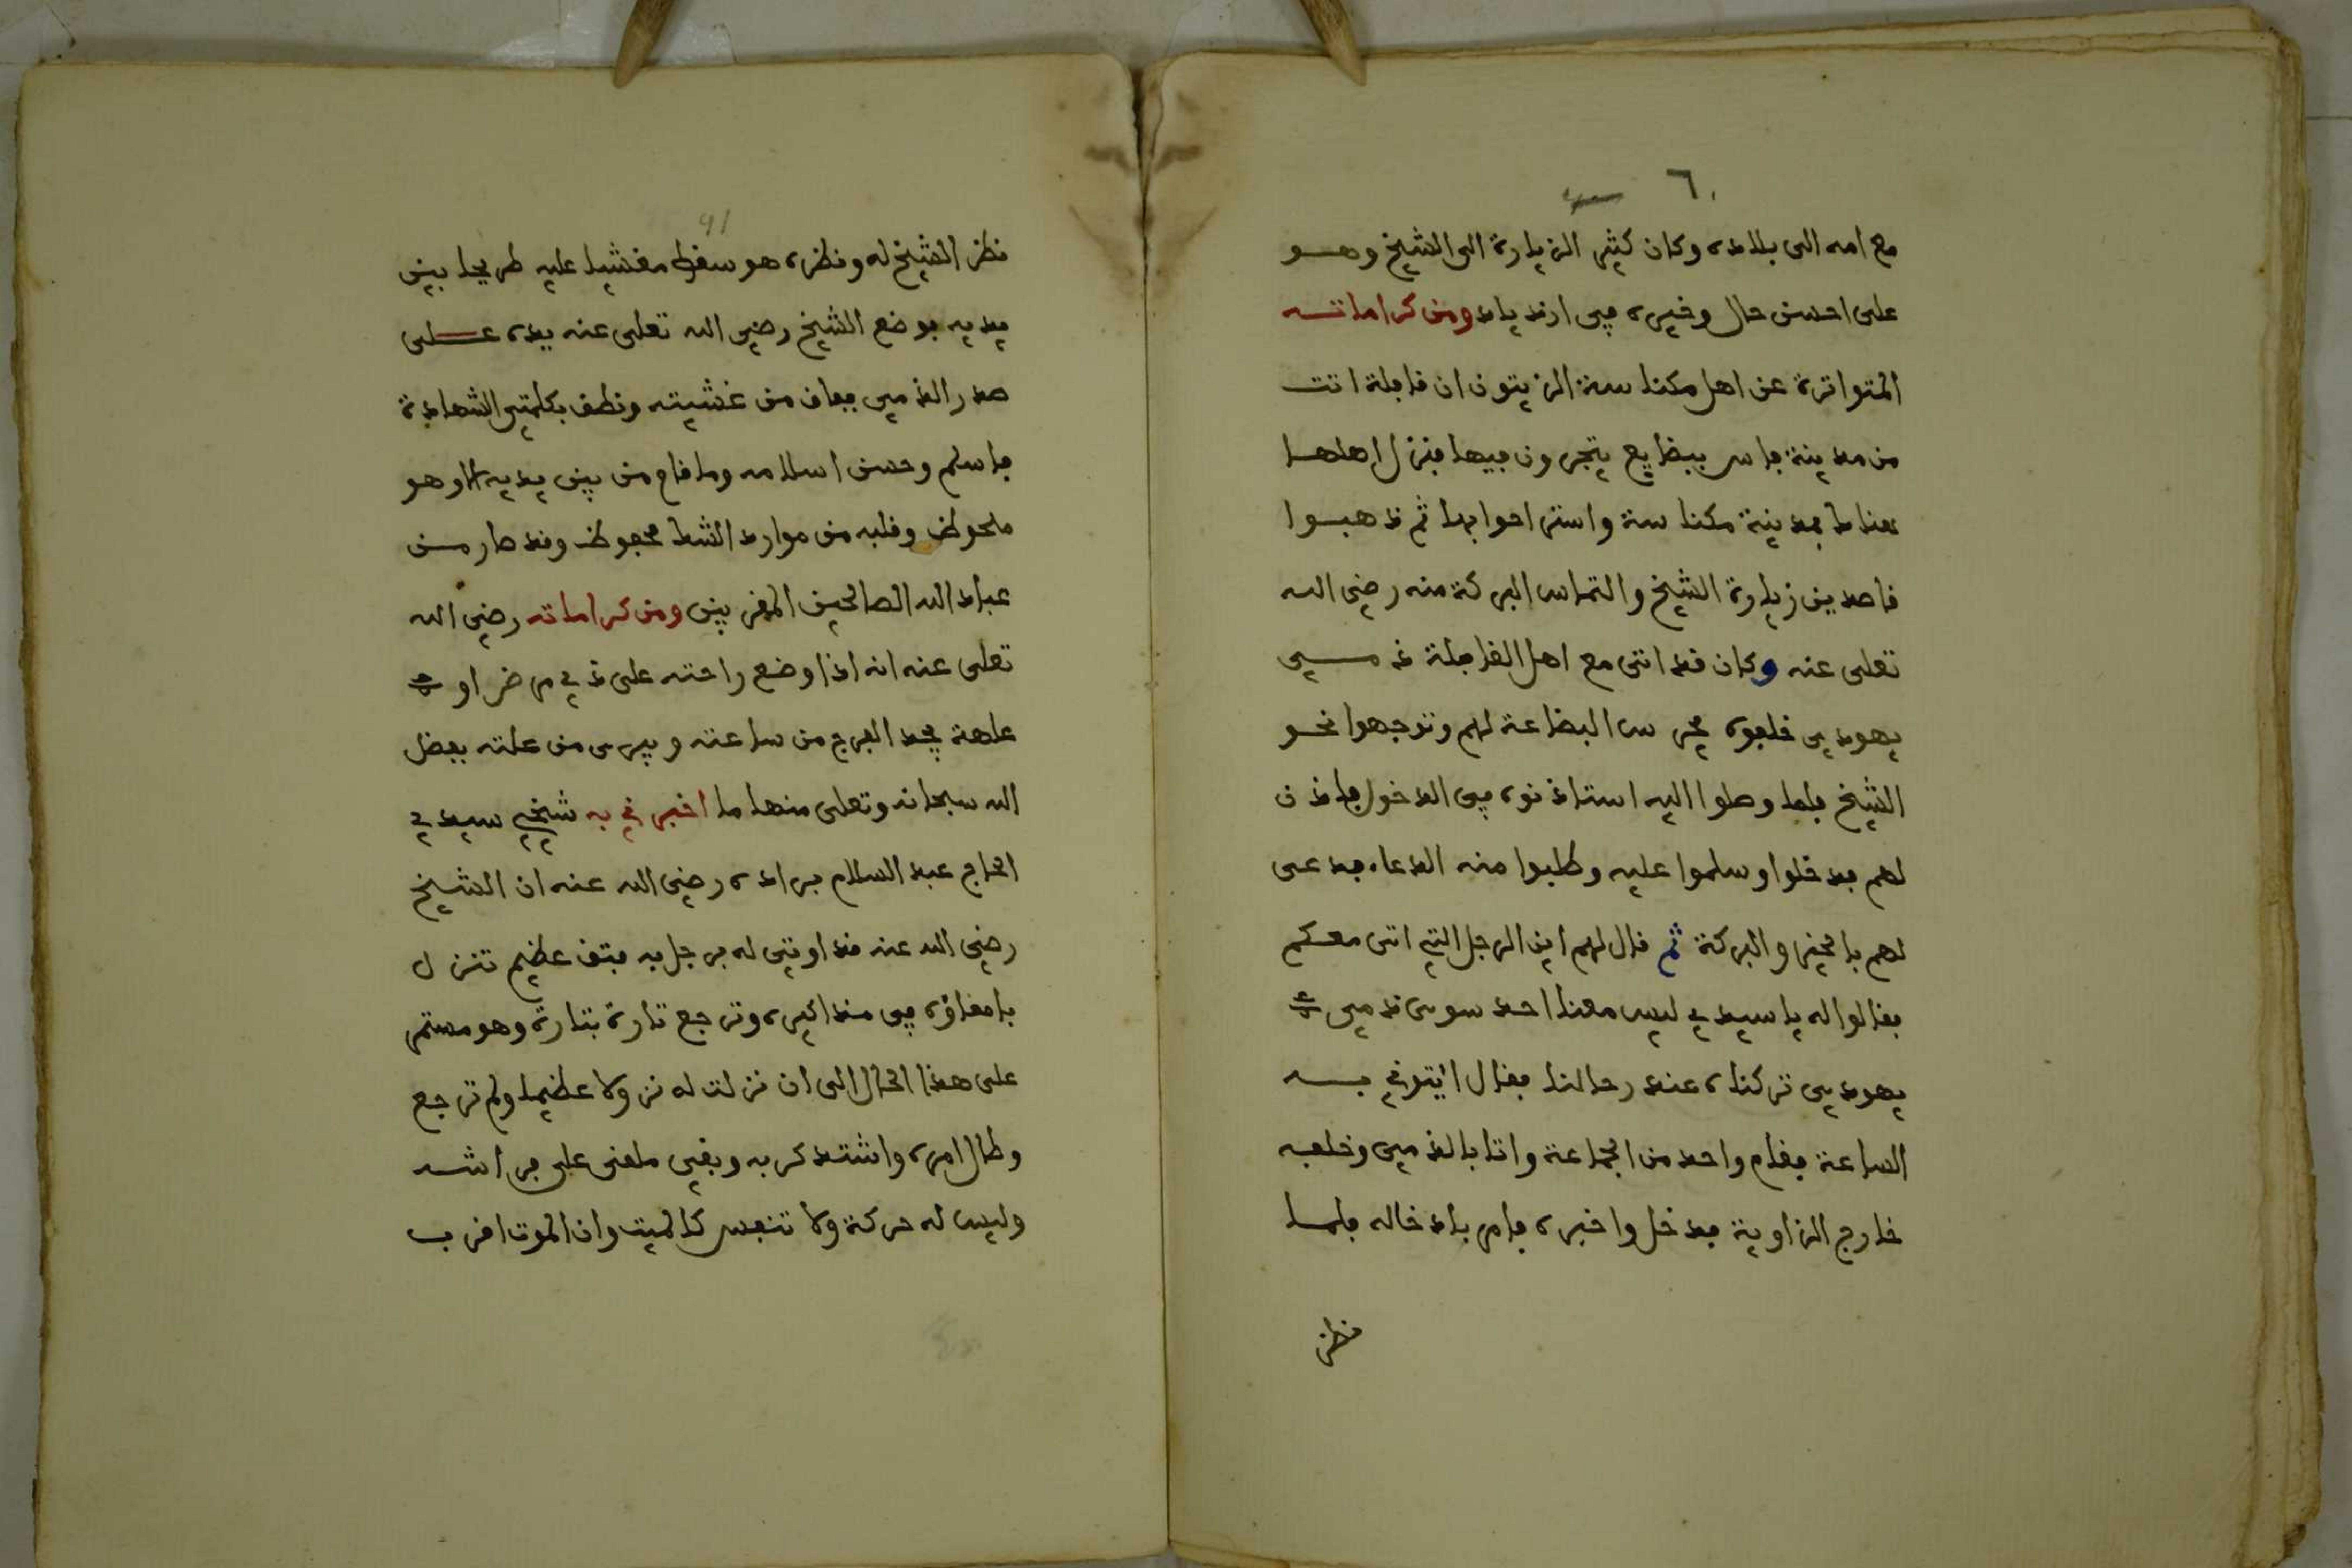 ٦٠
مع امه الى بلاده وكان كثير الزيارة الى الشيخ وهو
على احسن حال وخيره في ازدياد ومن كراماته
المتواترة عن اهل مكناسة الزيتون ان قافلة اتت
من مدينة فاس ببضايع يتجرون فيها فنزل اهلها
هناك بمدينة مكناسة واستراحوا بها ثم ذهبوا
قاصدين زيارة الشيخ والتماس البركة منه رضي الله
تعلى عنه وكان قد اتى مع اهل القافلة ذمي
يهودي خلفوه يحرس البضاعة لهم وتوجهوا نحو
الشيخ فلما وصلوا اليه استاذنوه في الدخول فاذن
لهم فدخلوا وسلموا عليه وطلبوا منه الدعاء فدعى
لهم بالخير والبركة ثم قال لهم اين الرجل التي اتى معكم
فقالوا له يا سيدي ليس معنا احد سوى ذمي
يهودي تركناه عند رحالنا فقال ايتوني به
الساعة فقام واحد من الجماعة واتا بالذمي وخلفه
خارج الزاوية فدخل واخبره فامر بادخاله فلما
نظر
٩١
نظر الشيخ له ونظره هو سقط مغشيا عليه طريحا بين
يديه فوضع الشيخ رضي الله تعلى عنه يده على
صدر الذمي ففاق من غشيته ونطق بكلمتي الشهادة
فاسلم وحسن اسلامه وما قام من بين يديه الا وهو
ملحوظ وقلبه من موارد الشك محفوظ وقد صار من
عباد الله الصالحين المقربين ومن كراماته رضي الله
تعلى عنه انه اذا وضع راحته على ذي مرض او
عاهة يجد الفرج من ساعته ويبرى من علته بفضل
الله سبحانه وتعلى منها ما اخبرني به شيخي سيدي
الحاج عبد السلام براده رضي الله عنه ان الشيخ
رضي الله عنه قد اوتي له برجل به فتق عظيم تنزل
بامعاؤه في مذاكيره وترجع تارة بتارة وهو مستمر
على هذا الحال الى ان نزلت له نزولا عظيما ولم ترجع
وطال امره واشتد كربه وبقي ملقى على فراشه
وليس له حركة ولا تنفس كالميت وان الموت اقرب